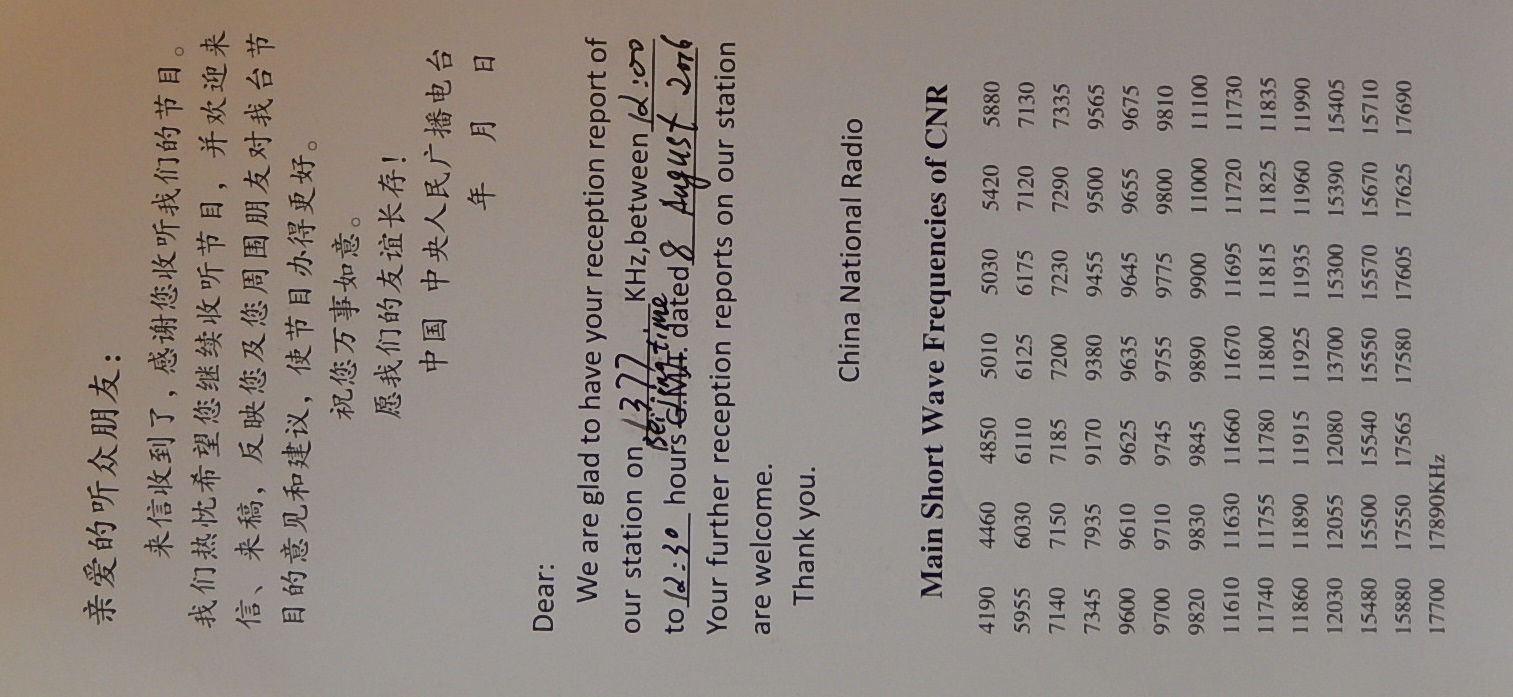 亲爱的听众朋友：
来信收到了，感谢您收听我们的节目。
我们热忱希望您继续收听节目，并欢迎来
信、来稿，反映您及您周围朋友对我台节
目的意见和建议，使节目办得更好。
祝您万事如意。
愿我们的友谊长存！
中国 中央人民广播电台
年 月 日
Dear:
We are glad to have your reception report of
our station on 1377 KHz,between 12:00
to 12:30 hours G.M.T. Beijing time dated 8 August 2016
Your further reception reports on our station
are welcome.
Thank you.
China National Radio
Main Short Wave Frequencies of CNR
4190 4460 4850 5010 5030 5420 5880
5955 6030 6110 6125 6175 7120 7130
7140 7150 7185 7200 7230 7290 7335
7345 7935 9170 9380 9455 9500 9565
9600 9610 9625 9635 9645 9655 9675
9700 9710 9745 9755 9775 9800 9810
9820 9830 9845 9890 9900 11000 11100
11610 11630 11660 11670 11695 11720 11730
11740 11755 11780 11800 11815 11825 11835
11860 11890 11915 11925 11935 11960 11990
12030 12055 12080 13700 15300 15390 15405
15480 15500 15540 15550 15570 15670 15710
15880 17550 17565 17580 17605 17625 17690
17700 17890KHz